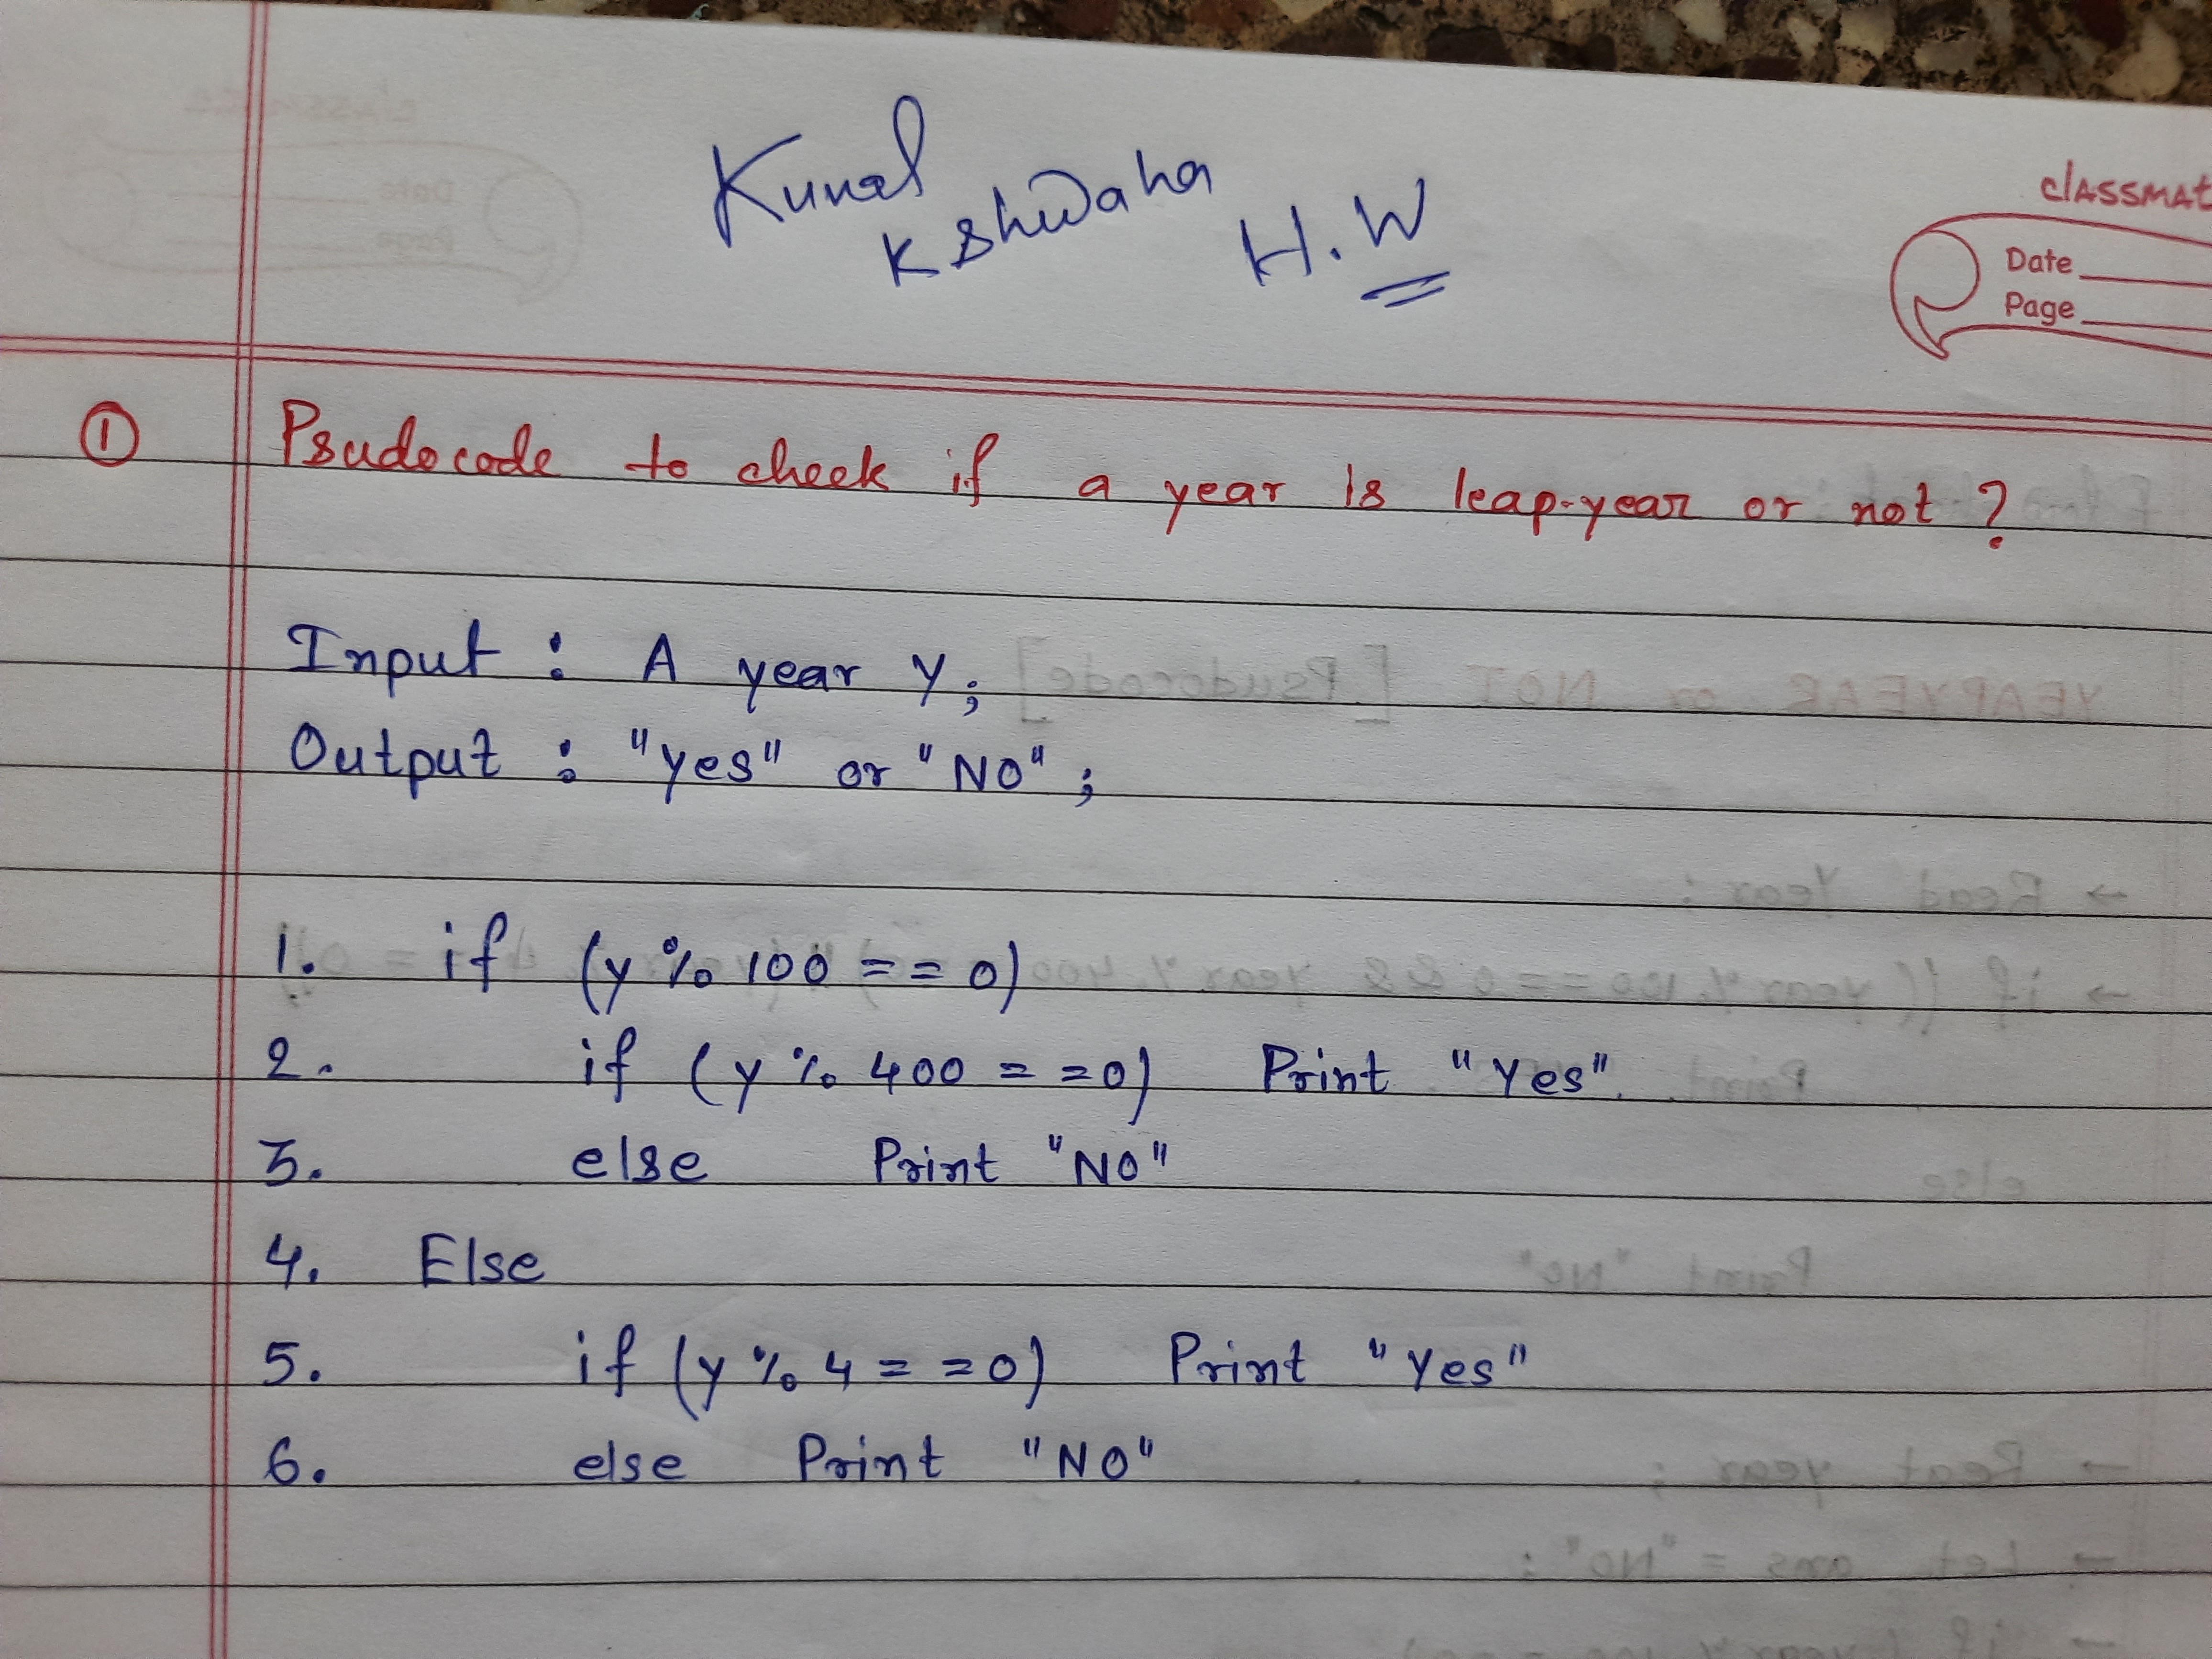 Kunal
Kshwaha H.W
classmat
Date
Page
① Psudocode to check if a year is leap-year or not?
Input : A year Y;
Output : "Yes" or "No";
1. if (y % 100 == 0)
2. if (y % 400 == 0) Print "Yes"
3. else Print "No"
4. Else
5. if (y % 4 == 0) Print "Yes"
6. else Print "No"